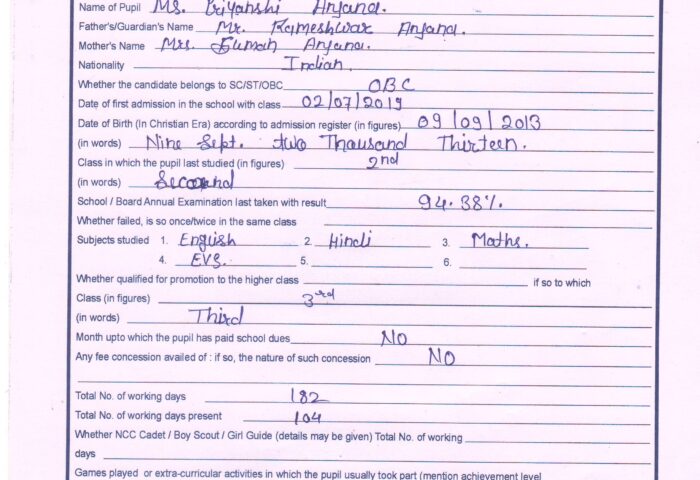 Name of Pupil Ms. Priyanshi Anjana.
Father's/Guardian's Name Mr. Rameshwar Anjana.
Mother's Name Mrs. Suman Anjana.
Nationality Indian.
Whether the candidate belongs to SC/ST/OBC OBC
Date of first admission in the school with class 02/07/2019
Date of Birth (In Christian Era) according to admission register (in figures) 09/09/2013
(in words) Nine Sept. two Thousand Thirteen.
Class in which the pupil last studied (in figures) 2nd
(in words) Second
School / Board Annual Examination last taken with result 94.38%.
Whether failed, is so once/twice in the same class
Subjects studied 1. English 2. Hindi 3. Maths.
4. EVS. 5. 6.
Whether qualified for promotion to the higher class if so to which
Class (in figures) 3rd
(in words) Third
Month upto which the pupil has paid school dues NO
Any fee concession availed of : if so, the nature of such concession NO
Total No. of working days 182
Total No. of working days present 104
Whether NCC Cadet / Boy Scout / Girl Guide (details may be given) Total No. of working
days
Games played or extra-curricular activities in which the pupil usually took part (mention achievement level